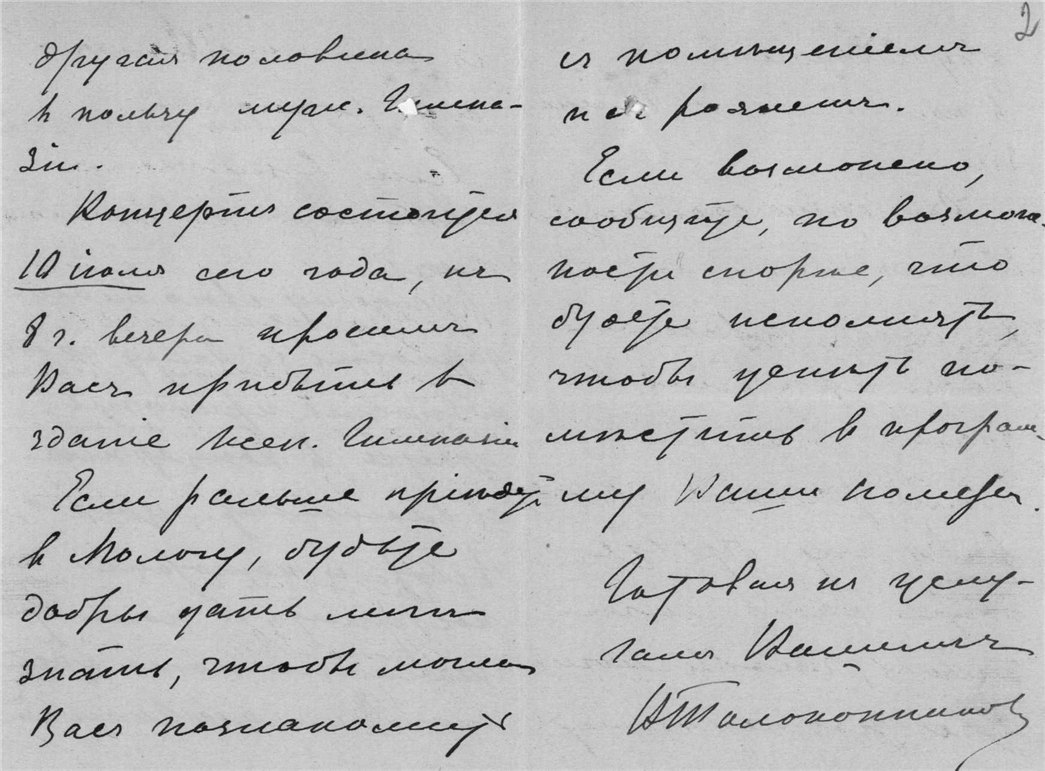 другая половина
в пользу муж. Гимна-
зіи.
Концертъ состоится
10 іюля сего года, къ
8 ч. вечера просимъ
Васъ прибыть въ
зданіе жен. Гимназіи
Если раньше пріѣдете
въ Мологу, будьте
добры дать мнѣ
знать, чтобы могла
Васъ познакомить
2
съ помѣщеніемъ
и роялемъ.
Если возможно,
сообщите, по возмож-
ности скорѣе, что
будете исполнять,
чтобы успѣть по-
мѣстить въ програм-
му Ваши номера.
Готовая къ услу-
гамъ Вашимъ
Толоконникова